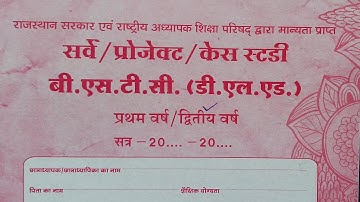 राजस्थान सरकार एवं राष्ट्रीय अध्यापक शिक्षा परिषद् द्वारा मान्यता प्राप्त
सर्वे/प्रोजेक्ट/केस स्टडी
बी.एस.टी.सी. (डी.एल.एड.)
प्रथम वर्ष/द्वितीय वर्ष
सत्र –20.... –20....
छात्राध्यापक/छात्राध्यापिका का नाम
पिता का नाम
शैक्षिक योग्यता